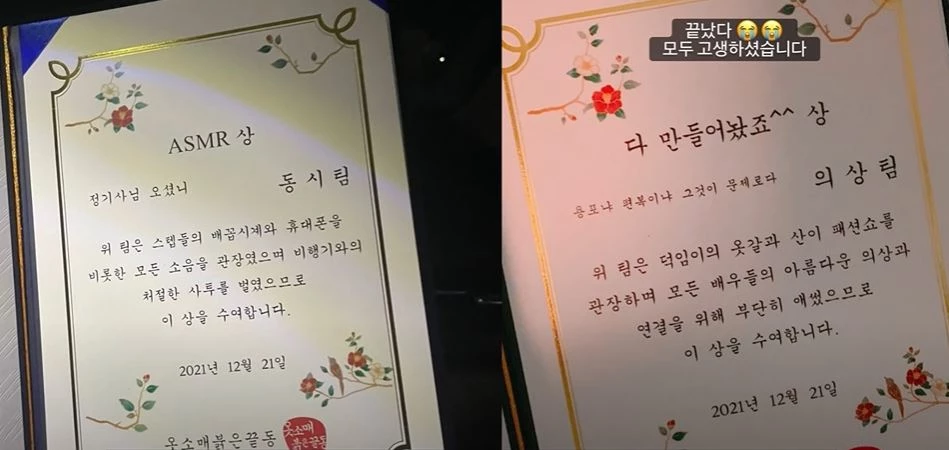 ASMR 상
정기사님 오셨니
동시팀
위 팀은 스텝들의 배꼽시계와 휴대폰을
비롯한 모든 소음을 관장였으며 비행기와의
처절한 사투를 벌였으므로
이 상을 수여합니다.
2021년 12월 21일
옷소매붉은끝동
옷소매
붉은끝동
끝났다 😭😭
모두 고생하셨습니다
다 만들어놨죠^^ 상
용포냐 편복이냐 그것이 문제로다
의상팀
위 팀은 덕임이의 옷갈과 산이 패션쇼를
관장하며 모든 배우들의 아름다운 의상과
연결을 위해 부단히 애썼으므로
이 상을 수여합니다.
2021년 12월 21일